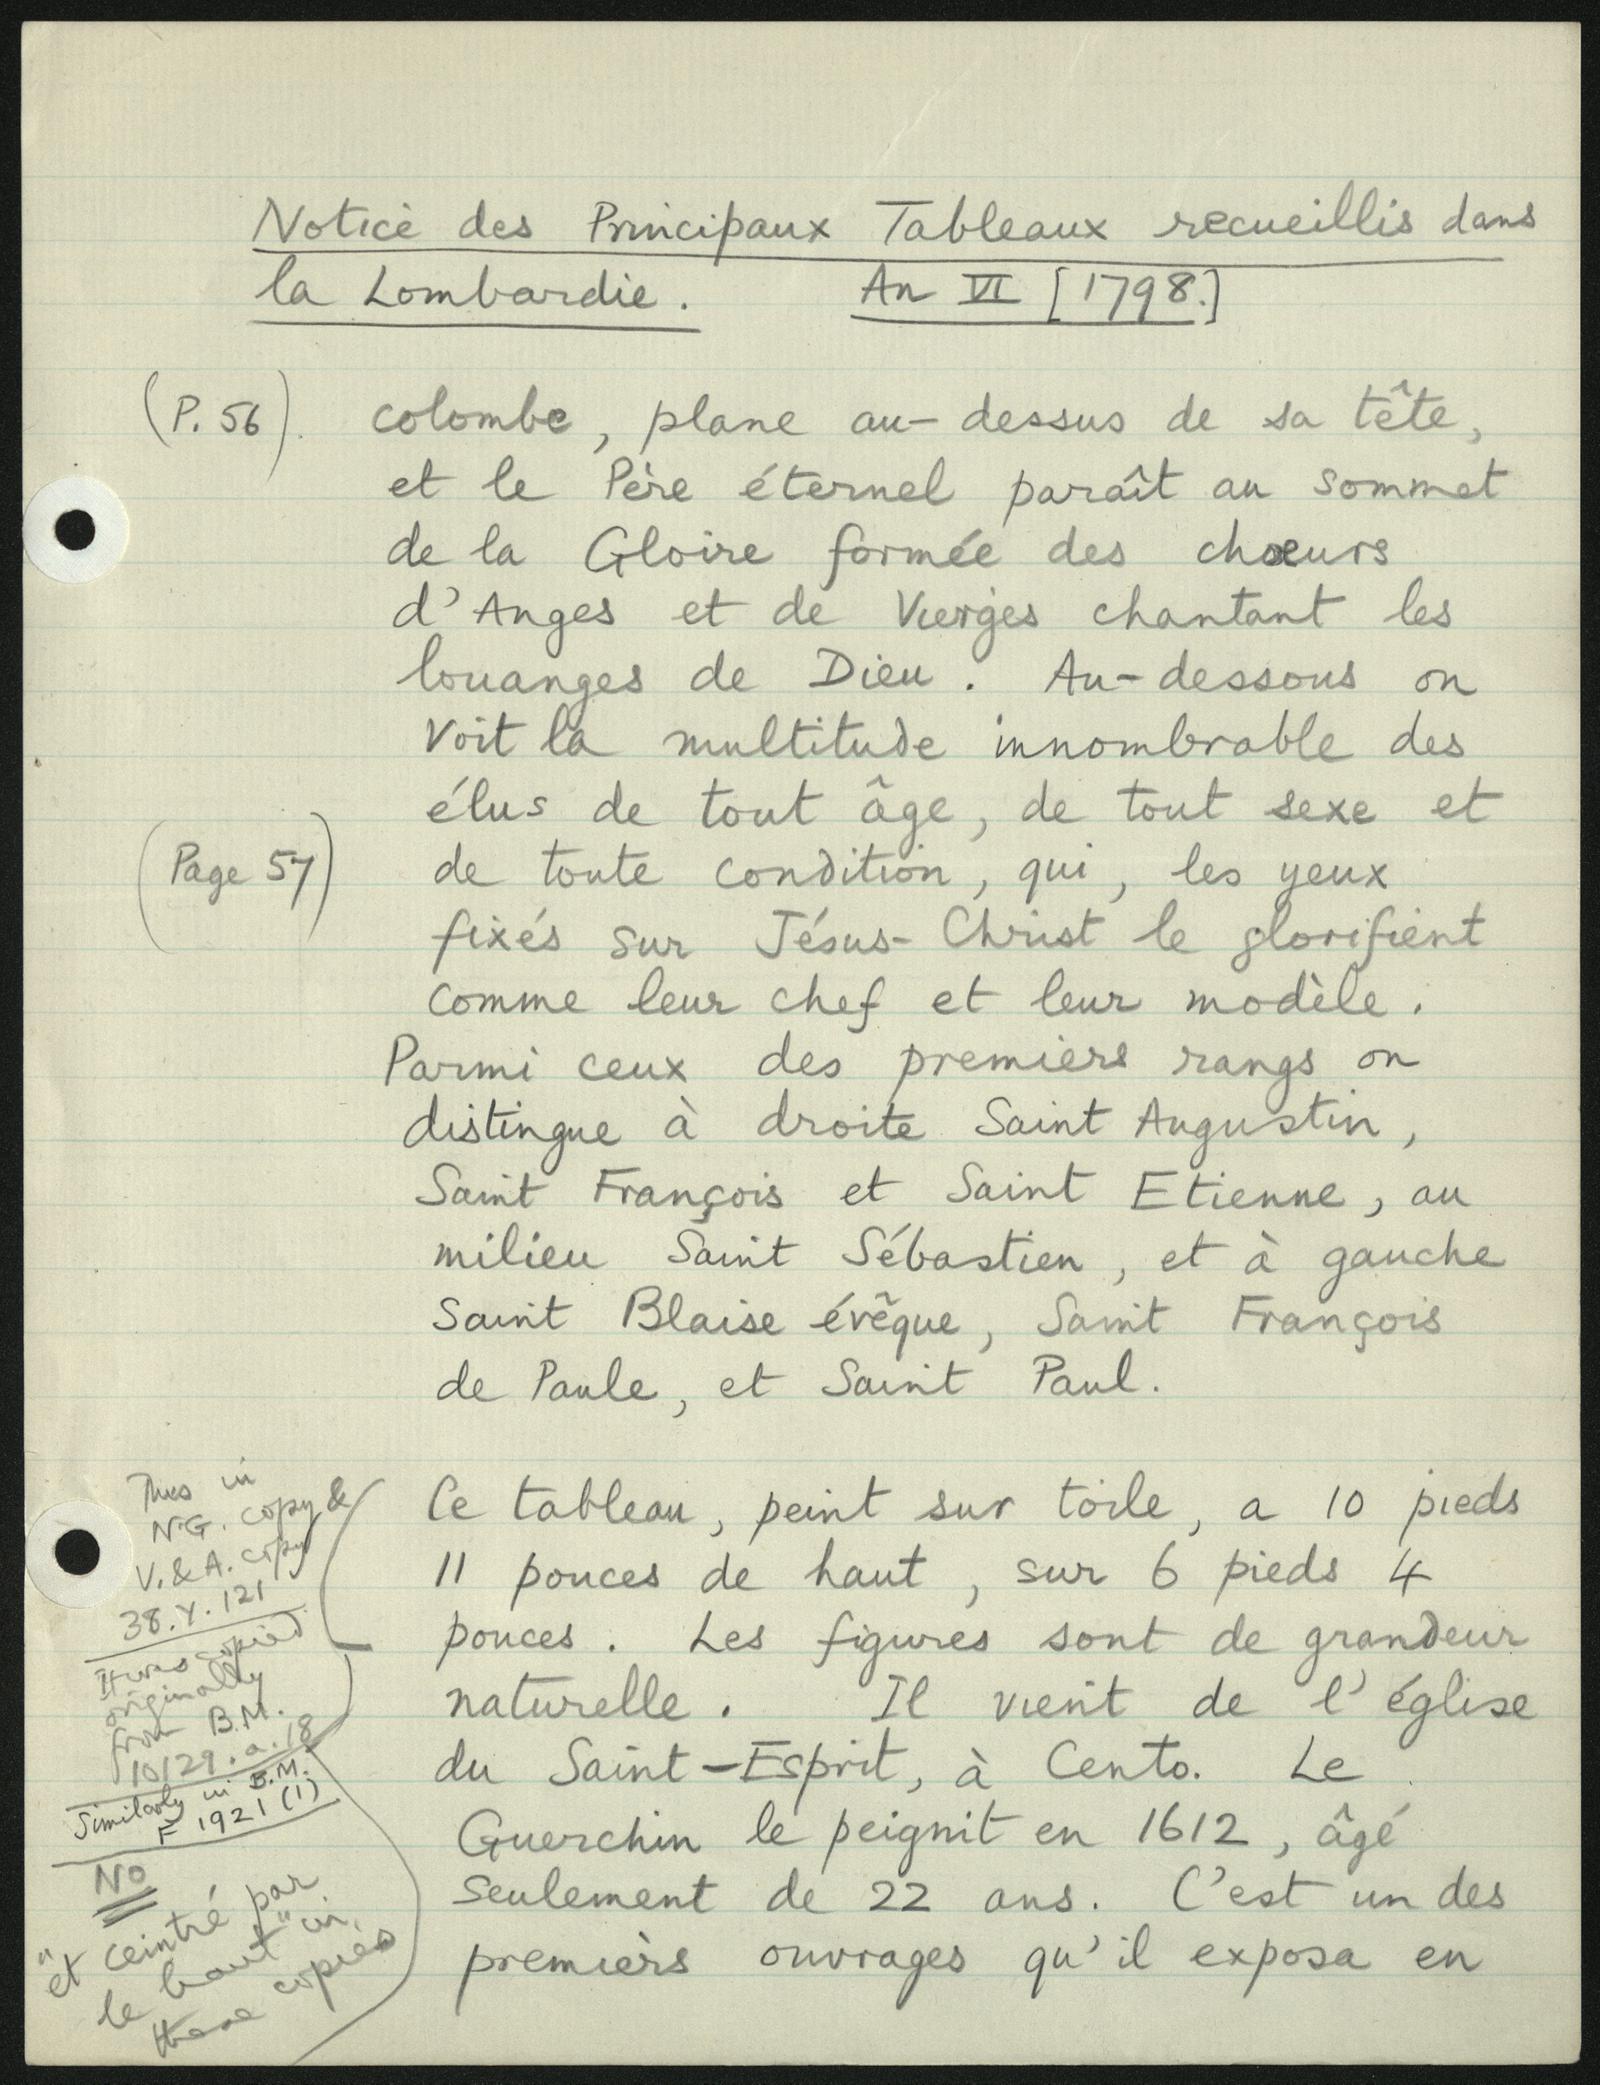 Notice des Principaux Tableaux recueillis dans
la Lombardie. An VI [1798.]
(P. 56). colombe, plane au-dessus de sa tête,
et le Père éternel paraît au sommet
de la Gloire formée des chœurs
d'Anges et de Vierges chantant les
louanges de Dieu. Au-dessous on
voit la multitude innombrable des
élus de tout âge, de tout sexe et
(Page 57) de toute condition, qui, les yeux
fixés sur Jésus-Christ le glorifient
comme leur chef et leur modèle.
Parmi ceux des premiers rangs on
distingue à droite Saint Augustin,
Saint François et Saint Etienne, au
milieu Saint Sébastien, et à gauche
Saint Blaise évêque, Saint François
de Paule, et Saint Paul.
Ce tableau, peint sur toile, a 10 pieds
11 pouces de haut, sur 6 pieds 4
pouces. Les figures sont de grandeur
naturelle. Il vient de l'église
du Saint-Esprit, à Cento. Le
Guerchin le peignit en 1612, âgé
seulement de 22 ans. C'est un des
premiers ouvrages qu'il exposa en
Thus in
N.G. copy &
V. & A. copy
38.Y.121
It was copied
originally
from B.M.
10129.a.18
Similarly in B.M.
F 1921 (1)
No
"et ceintré par
le haut" in
these copies